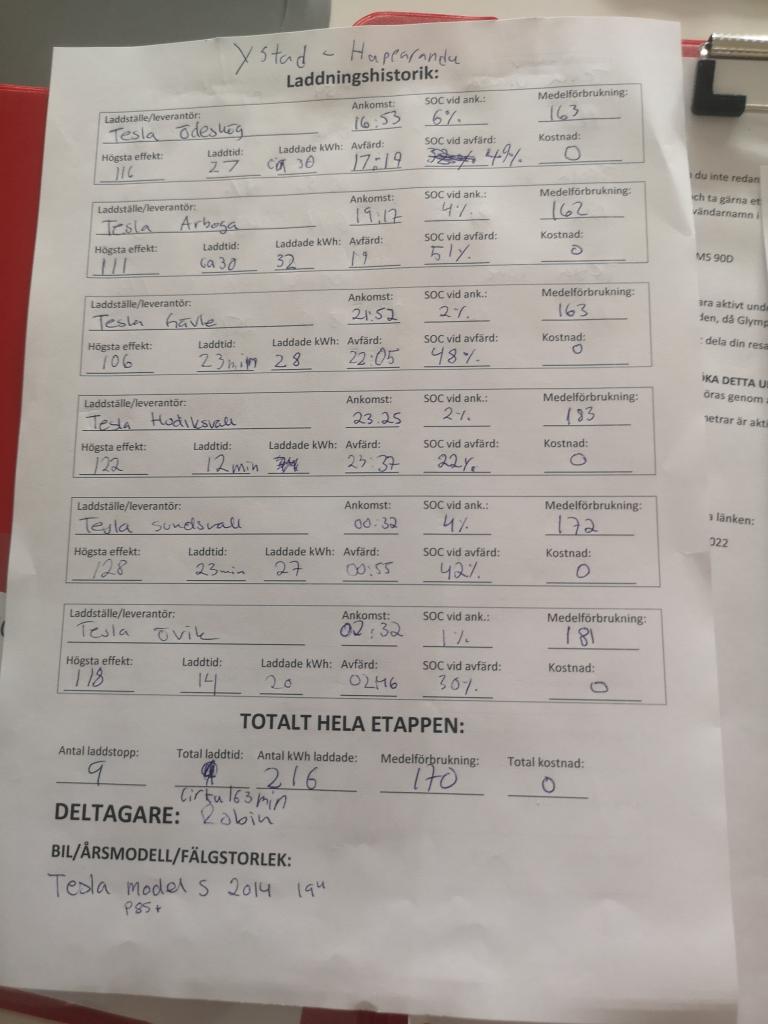 Ystad - Happaranda
Laddningshistorik:
Laddställe/leverantör: Ankomst: SOC vid ank.: Medelförbrukning:
Tesla Ödeshög 16:53 6% 163
Högsta effekt: Laddtid: Laddade kWh: Avfärd: SOC vid avfärd: Kostnad:
116 27 ca 30 17:19 49% 0
Laddställe/leverantör: Ankomst: SOC vid ank.: Medelförbrukning:
Tesla Arboga 19:17 4% 162
Högsta effekt: Laddtid: Laddade kWh: Avfärd: SOC vid avfärd: Kostnad:
111 ca 30 32 19 51% 0
Laddställe/leverantör: Ankomst: SOC vid ank.: Medelförbrukning:
Tesla Gävle 21:52 2% 163
Högsta effekt: Laddtid: Laddade kWh: Avfärd: SOC vid avfärd: Kostnad:
106 23 min 28 22:05 48% 0
Laddställe/leverantör: Ankomst: SOC vid ank.: Medelförbrukning:
Tesla Hudiksvall 23.25 2% 183
Högsta effekt: Laddtid: Laddade kWh: Avfärd: SOC vid avfärd: Kostnad:
122 12 min 23:37 22% 0
Laddställe/leverantör: Ankomst: SOC vid ank.: Medelförbrukning:
Tesla sundsvall 00:32 4% 172
Högsta effekt: Laddtid: Laddade kWh: Avfärd: SOC vid avfärd: Kostnad:
128 23min 27 00:55 42% 0
Laddställe/leverantör: Ankomst: SOC vid ank.: Medelförbrukning:
Tesla övik 02:32 1% 181
Högsta effekt: Laddtid: Laddade kWh: Avfärd: SOC vid avfärd: Kostnad:
118 14 20 02:46 30% 0
TOTALT HELA ETAPPEN:
Antal laddstopp: Total laddtid: Antal kWh laddade: Medelförbrukning: Total kostnad:
9 216 170 0
Cirka 163 min
DELTAGARE: Robin
BIL/ÅRSMODELL/FÄLGSTORLEK:
Tesla model S 2014 19"
P85+
du inte redan
och ta gärna et
vändarnamn i
MS 90D
ara aktivt und
den, då Glymp
dela din resa
IKA DETTA U
öras genom
netrar är akti
länken:
022